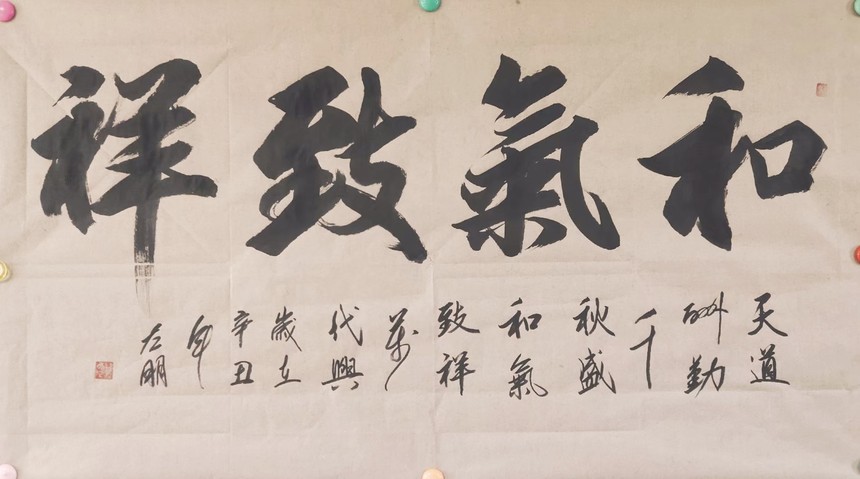 和氣致祥
天道
酬勤
千
秋盛
和氣
致祥
萬
代興
歲在
辛丑
年
左明